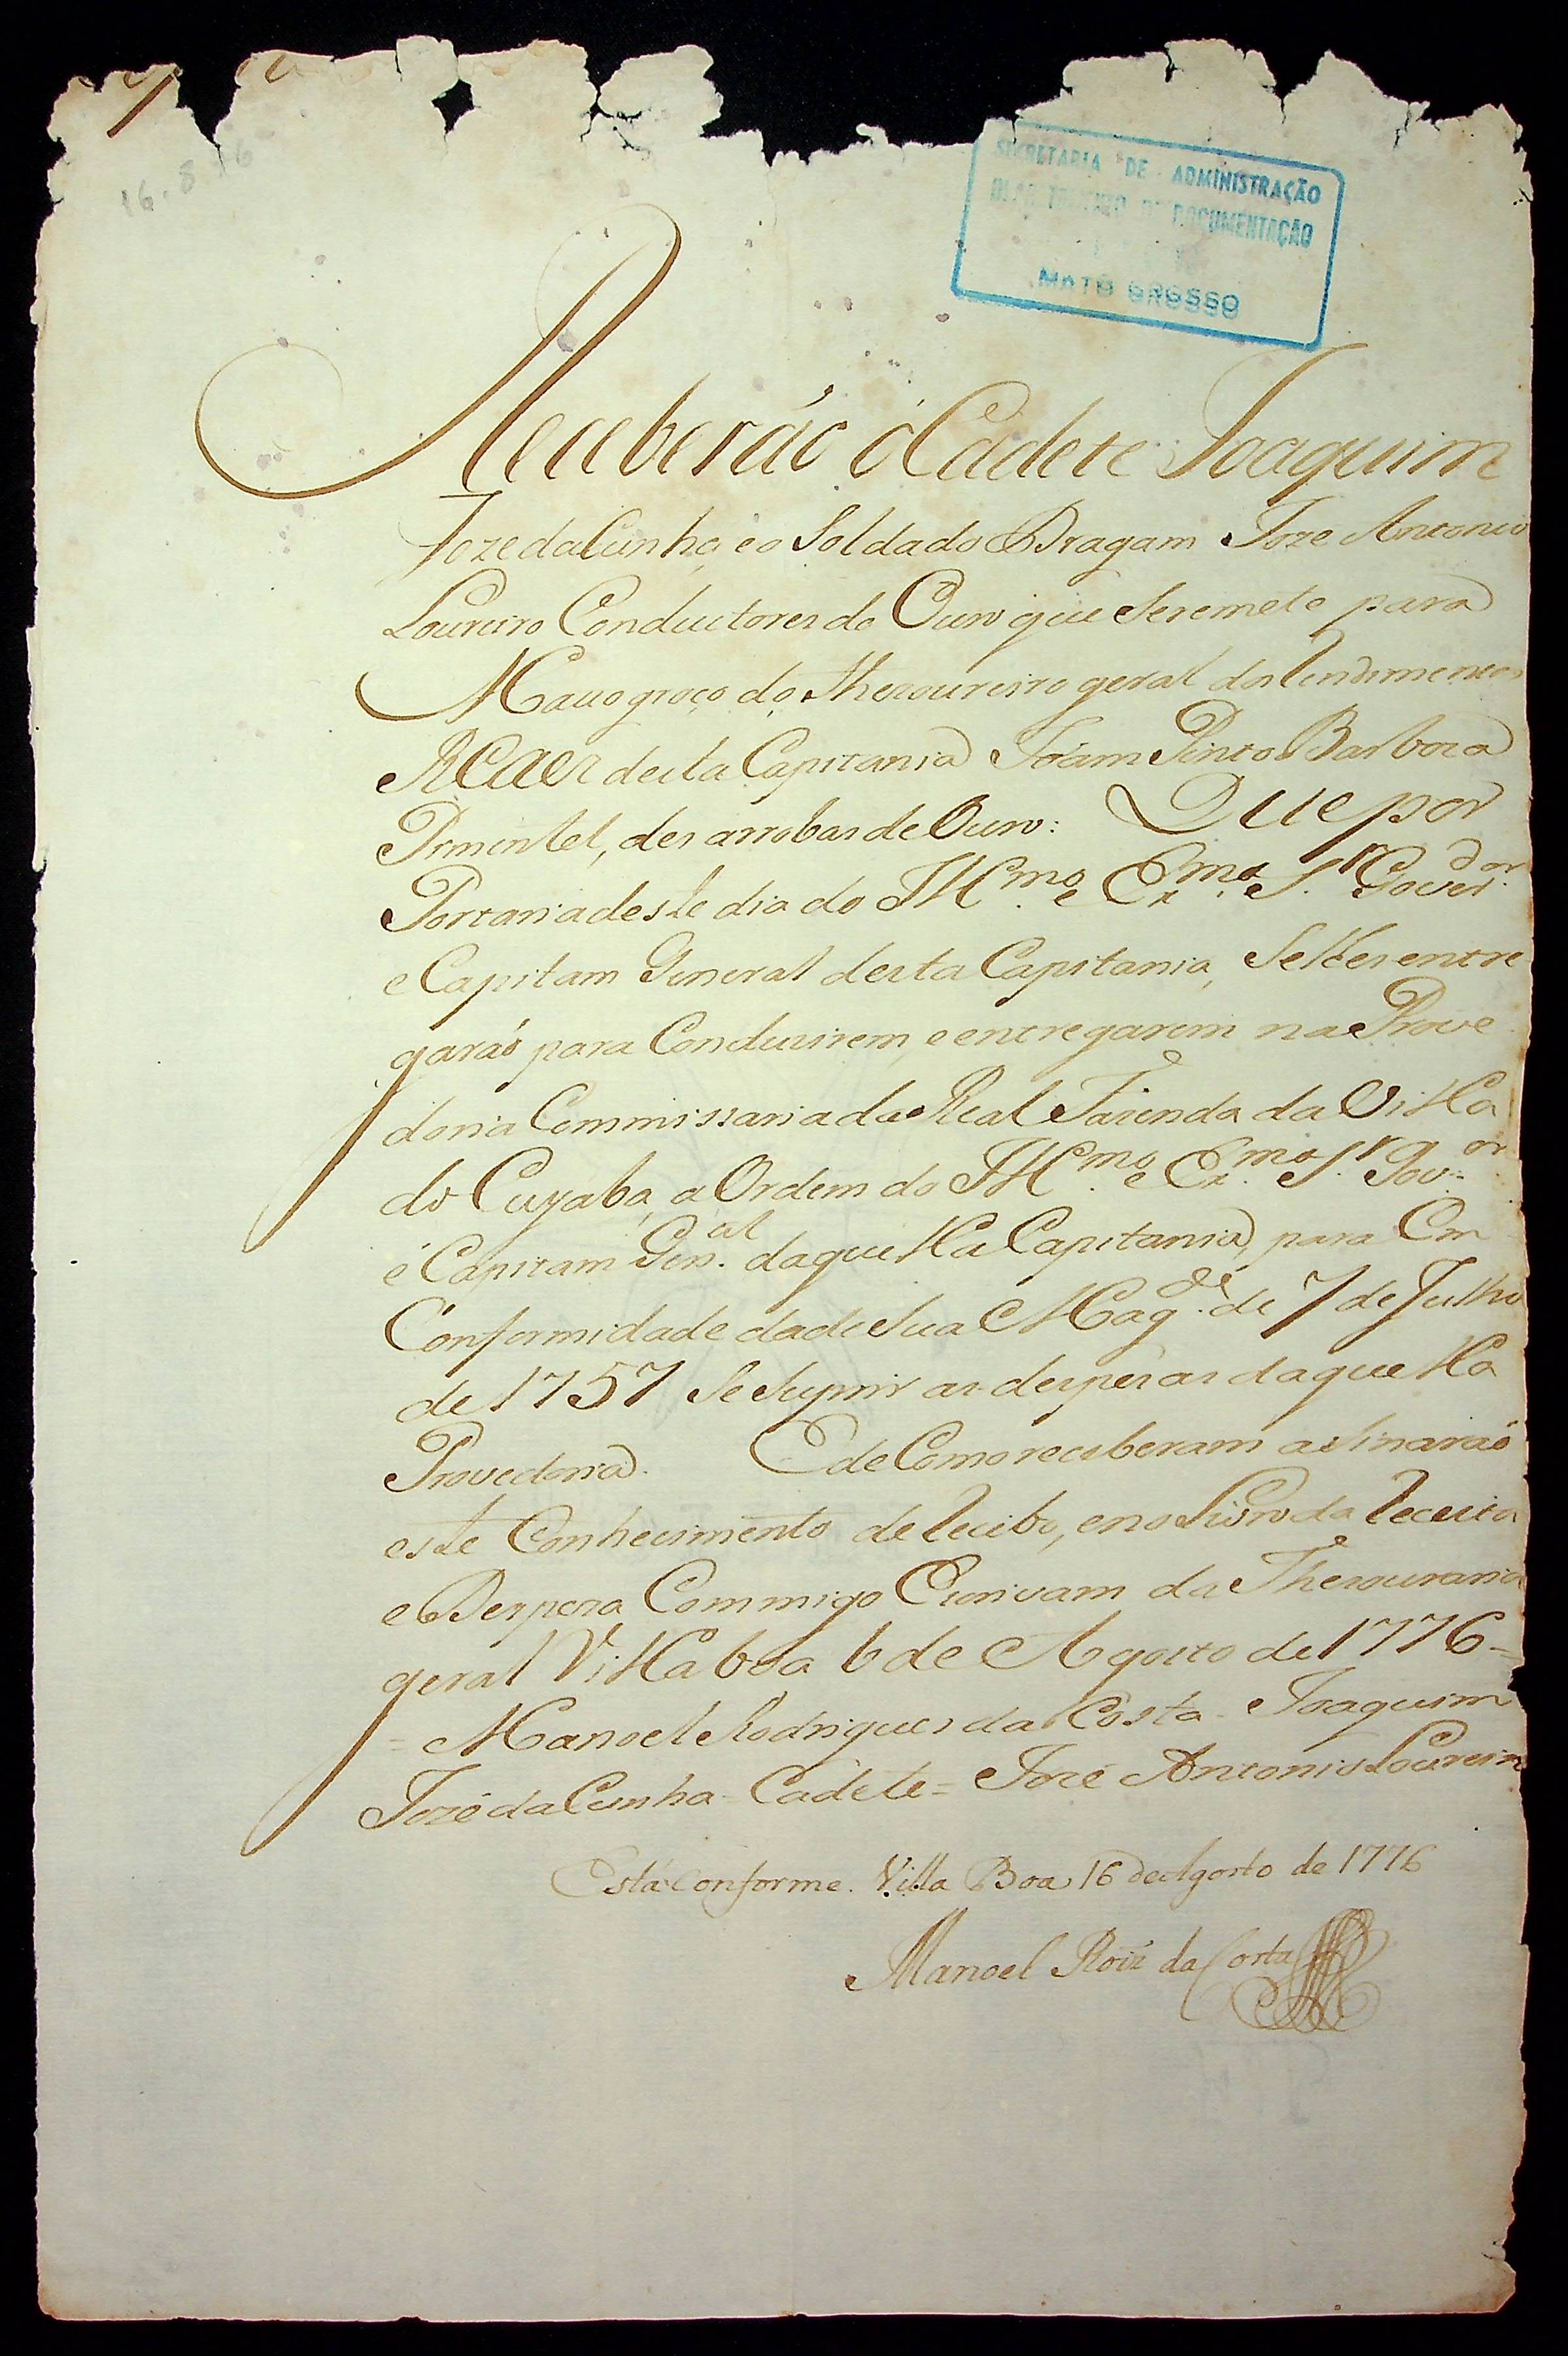 16.8.76
SECRETARIA DE ADMINISTRAÇÃO
DE DOCUMENTAÇÃO
MATO GROSSO
Receberáo o Cadete Joaquim
Joze da Cunha, e o Soldado Dragam Joze Antonio
Loureiro Conductores do Ouro que Se remete para
Mattogroço do Thezoureiro geral dos Rendimentos
Reaes desta Capitania Joam Pinto Barboza
Pimentel, des arrobas de Ouro: Que por
Portaria deste dia do Ill.mo e Ex.mo S.r Gover.dor
e Capitam General desta Capitania, Se lhes entre
garáo para Conduzirem, e entregarem na Prove
doria Commissaria da Real Fazenda da Villa
do Cuyabá, a Ordem do Ill.mo e Ex.mo S.r Gov.or
e Capitam Gen.al daquella Capitania, para Em
Conformidade da de Sua Mag.de de 7 de Julho
de 1757 Se Suprir as despezas daquella
Provedoria. E de Como receberam asinaráo
este Conhecimento de Recibo, e no Livro da Receita
e Despeza Commigo Escrivam da Thezouraria
geral Villa boa 6 de Agosto de 1776 =
= Manoel Rodrigues da Costa = Joaquim
Jozé da Cunha = Cadete = Jozé Antonio Loureiro
Está Conforme. Villa Boa 16 de Agosto de 1776
Manoel Roiz da Costa